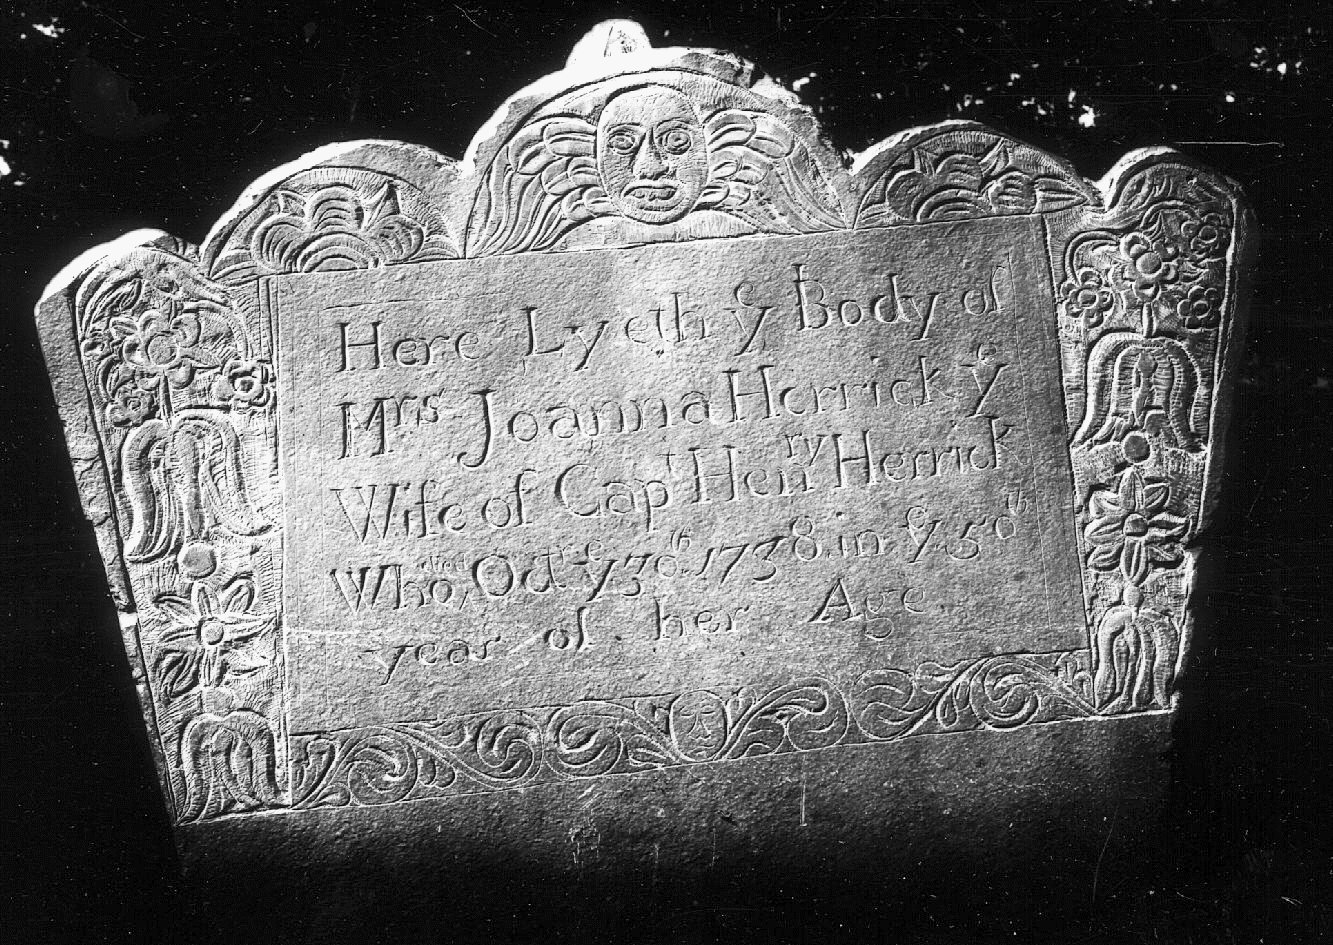 Here Lyeth yͤ Body of
Mrs Joanna Herrick yͤ
Wife of Capᵗ Henʳʸ Herrick
Who died Octʳ yͤ 30ᵗʰ 1738 in yͤ 50ᵗʰ
year of her Age